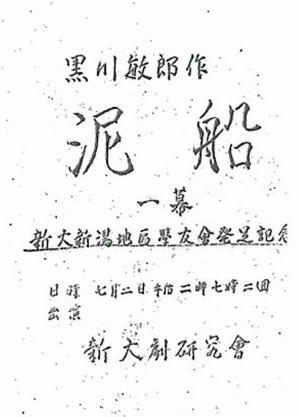 黒川敏郎作
泥船
一幕
新大新潟地区学友會発足記念
日時 七月二日 后二時七時二回
出演
新大劇研究會